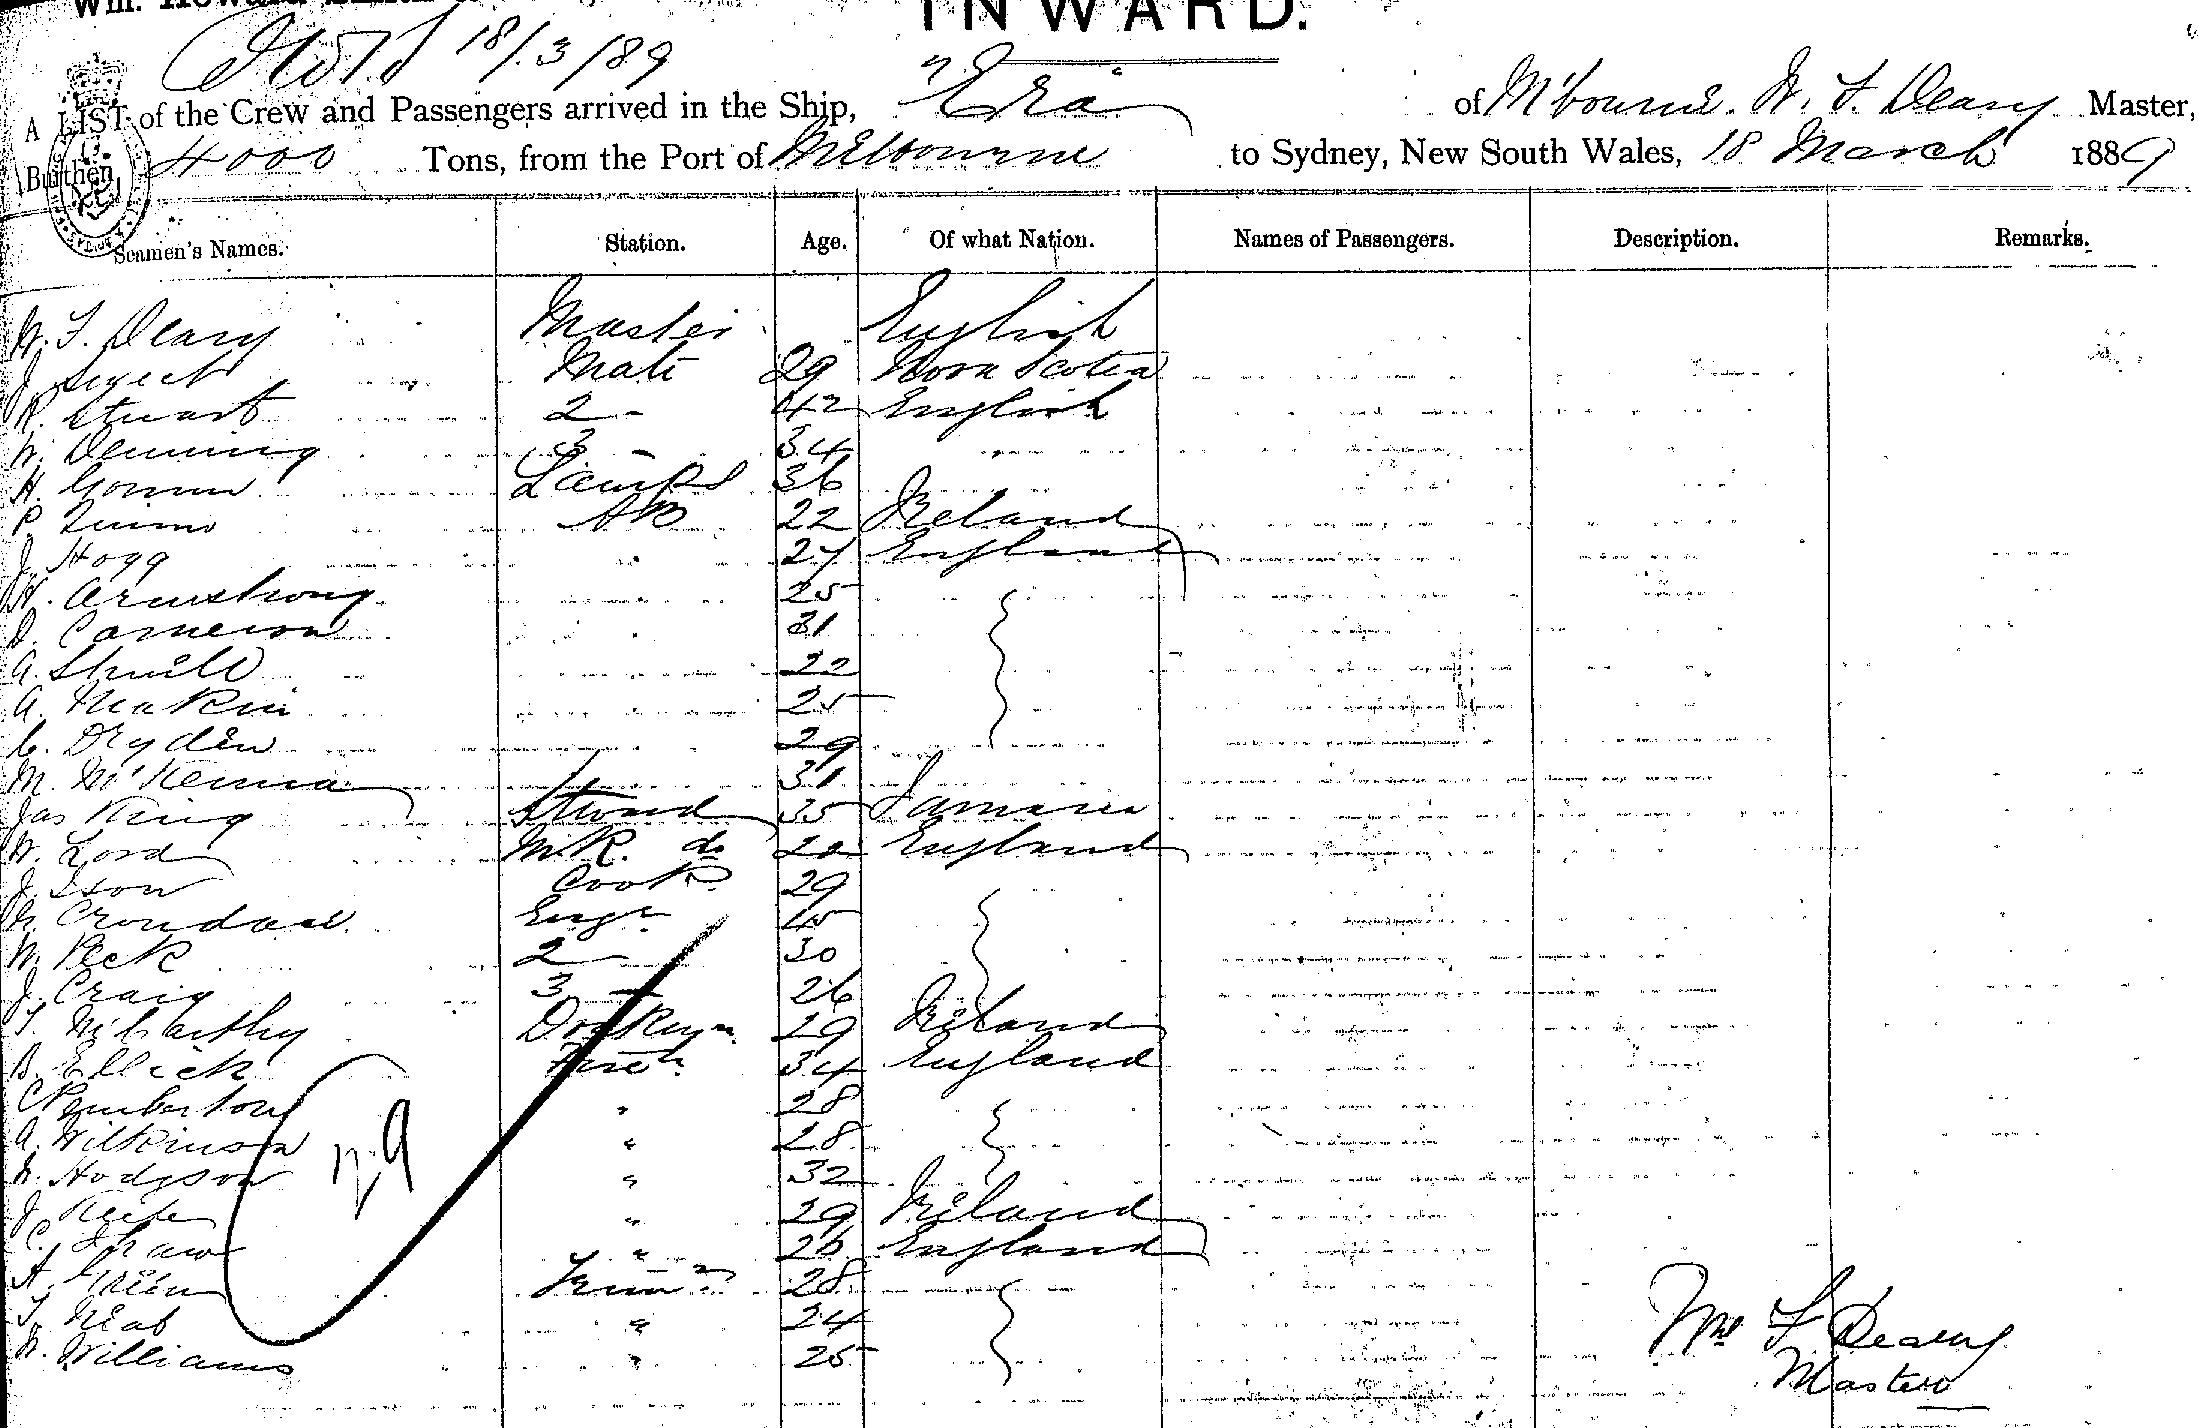 Wm. Howard
INWARD.
18/3/89
A LIST of the Crew and Passengers arrived in the Ship, "Era of M'bourne. W. F. Deary Master,
Burthen 4000 Tons, from the Port of Melbourne to Sydney, New South Wales, 18 March 1889
Seamen's Names. Station. Age. Of what Nation. Names of Passengers. Description. Remarks.
W. F. Deary Master English
J Mate 29 Nova Scotia
R. Stuart 2 - 42 English
W. Denning 3 - 34
H. Lamps 36
P. AB 22 Ireland
J. Hogg " 27 England
H. Armstrong 25
D. Cameron " 31
A. 22
A. Makin 25
C. Dryden 29
M. McKenna 31
Jas King Steward 35 Jamaica
W. Lord do 20 England
J. Ison Cook 29
Engr 45
W. Peck 2 - 30
J. Craig 3 - 26
T. McCarthy Donkeyn. 29 Ireland
B. Ellick 34 England
C Pemberton " 28
A. Wilkinson " 28
W. Hodgson " 32
J. Keefe " 29 Ireland
C. Shaw " 26 England
A. Green 28
T. Neab " 24
W. Williams " 25
29
Wm F Deary
Master